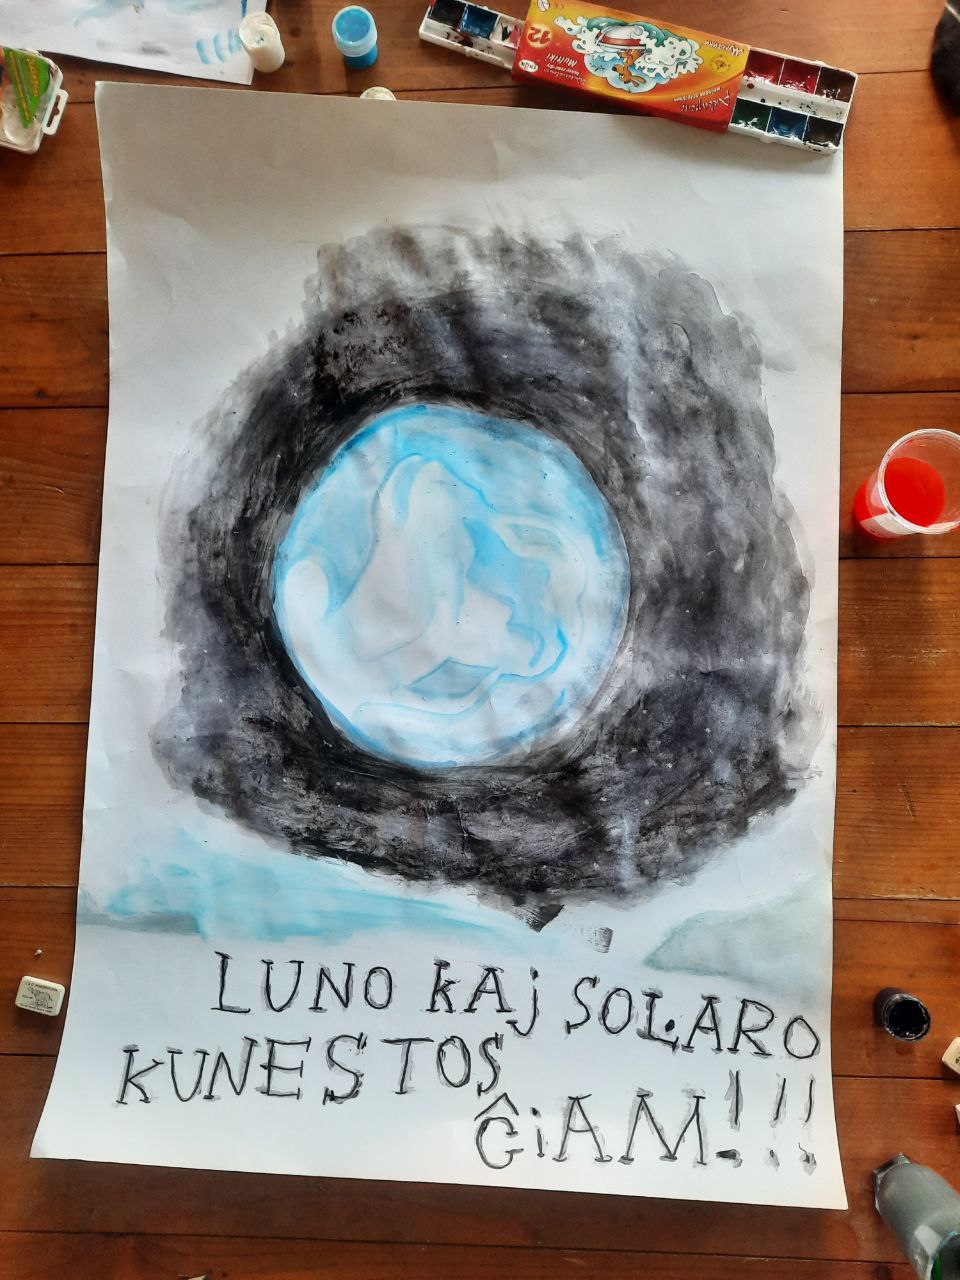 12
Multiki
LUNO KAJ SOLARO
KUNESTOS
ĜIAM!!!